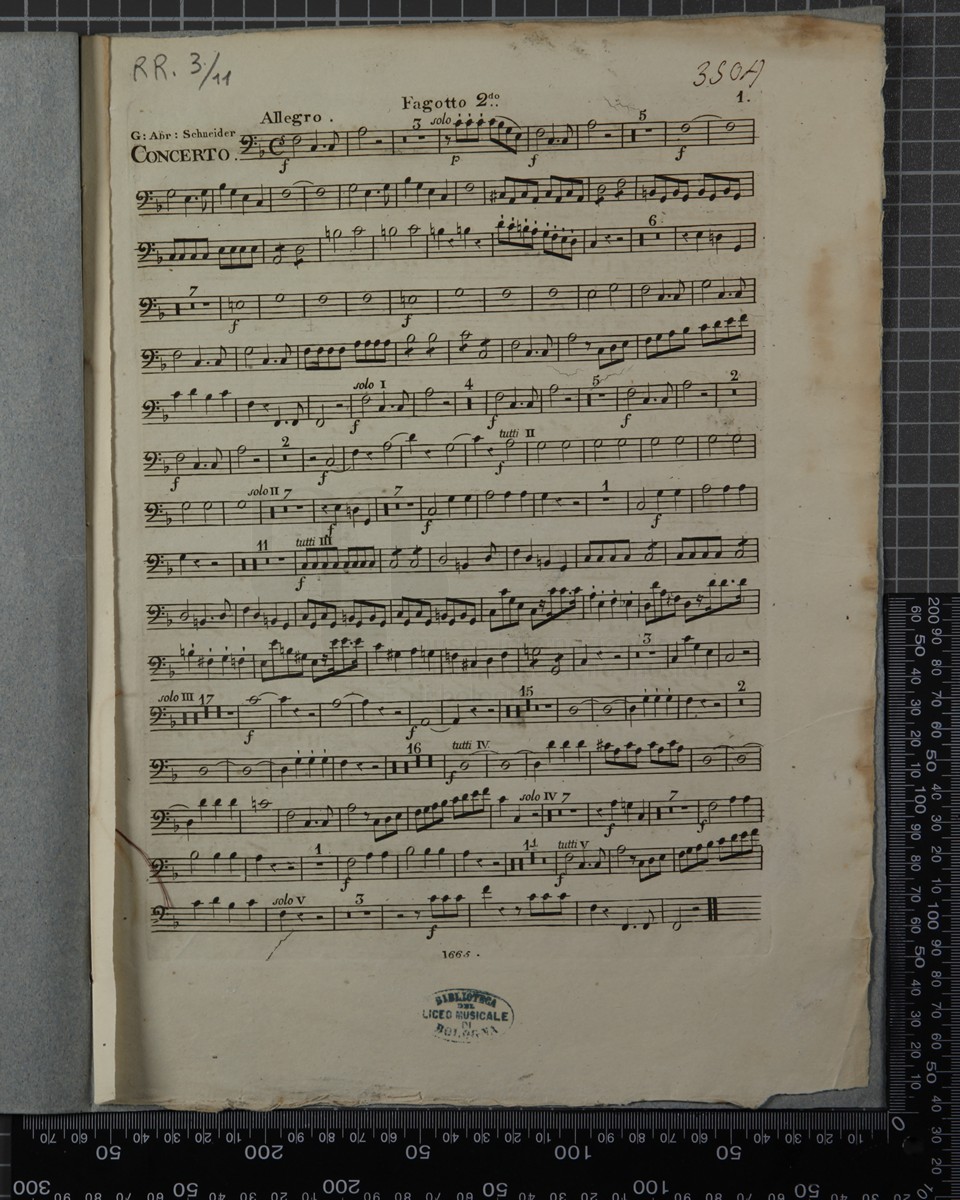 RR. 3/11
3504
Fagotto 2do..
1.
Allegro.
G: Abr: Schneider
CONCERTO.
3 solo 5
f p f f
6
7
f f
solo I 4 5 2
f f f
2 tutti II
f f f
solo II 7 7 1
f f f
11 tutti III
f
3
solo III 17 15 2
f f
16 tutti IV
f
solo IV 7 7
f f
1 11 tutti V
f f
solo V 3
f
1665.
BIBLIOTECA
DEL
LICEO MUSICALE
DI
BOLOGNA